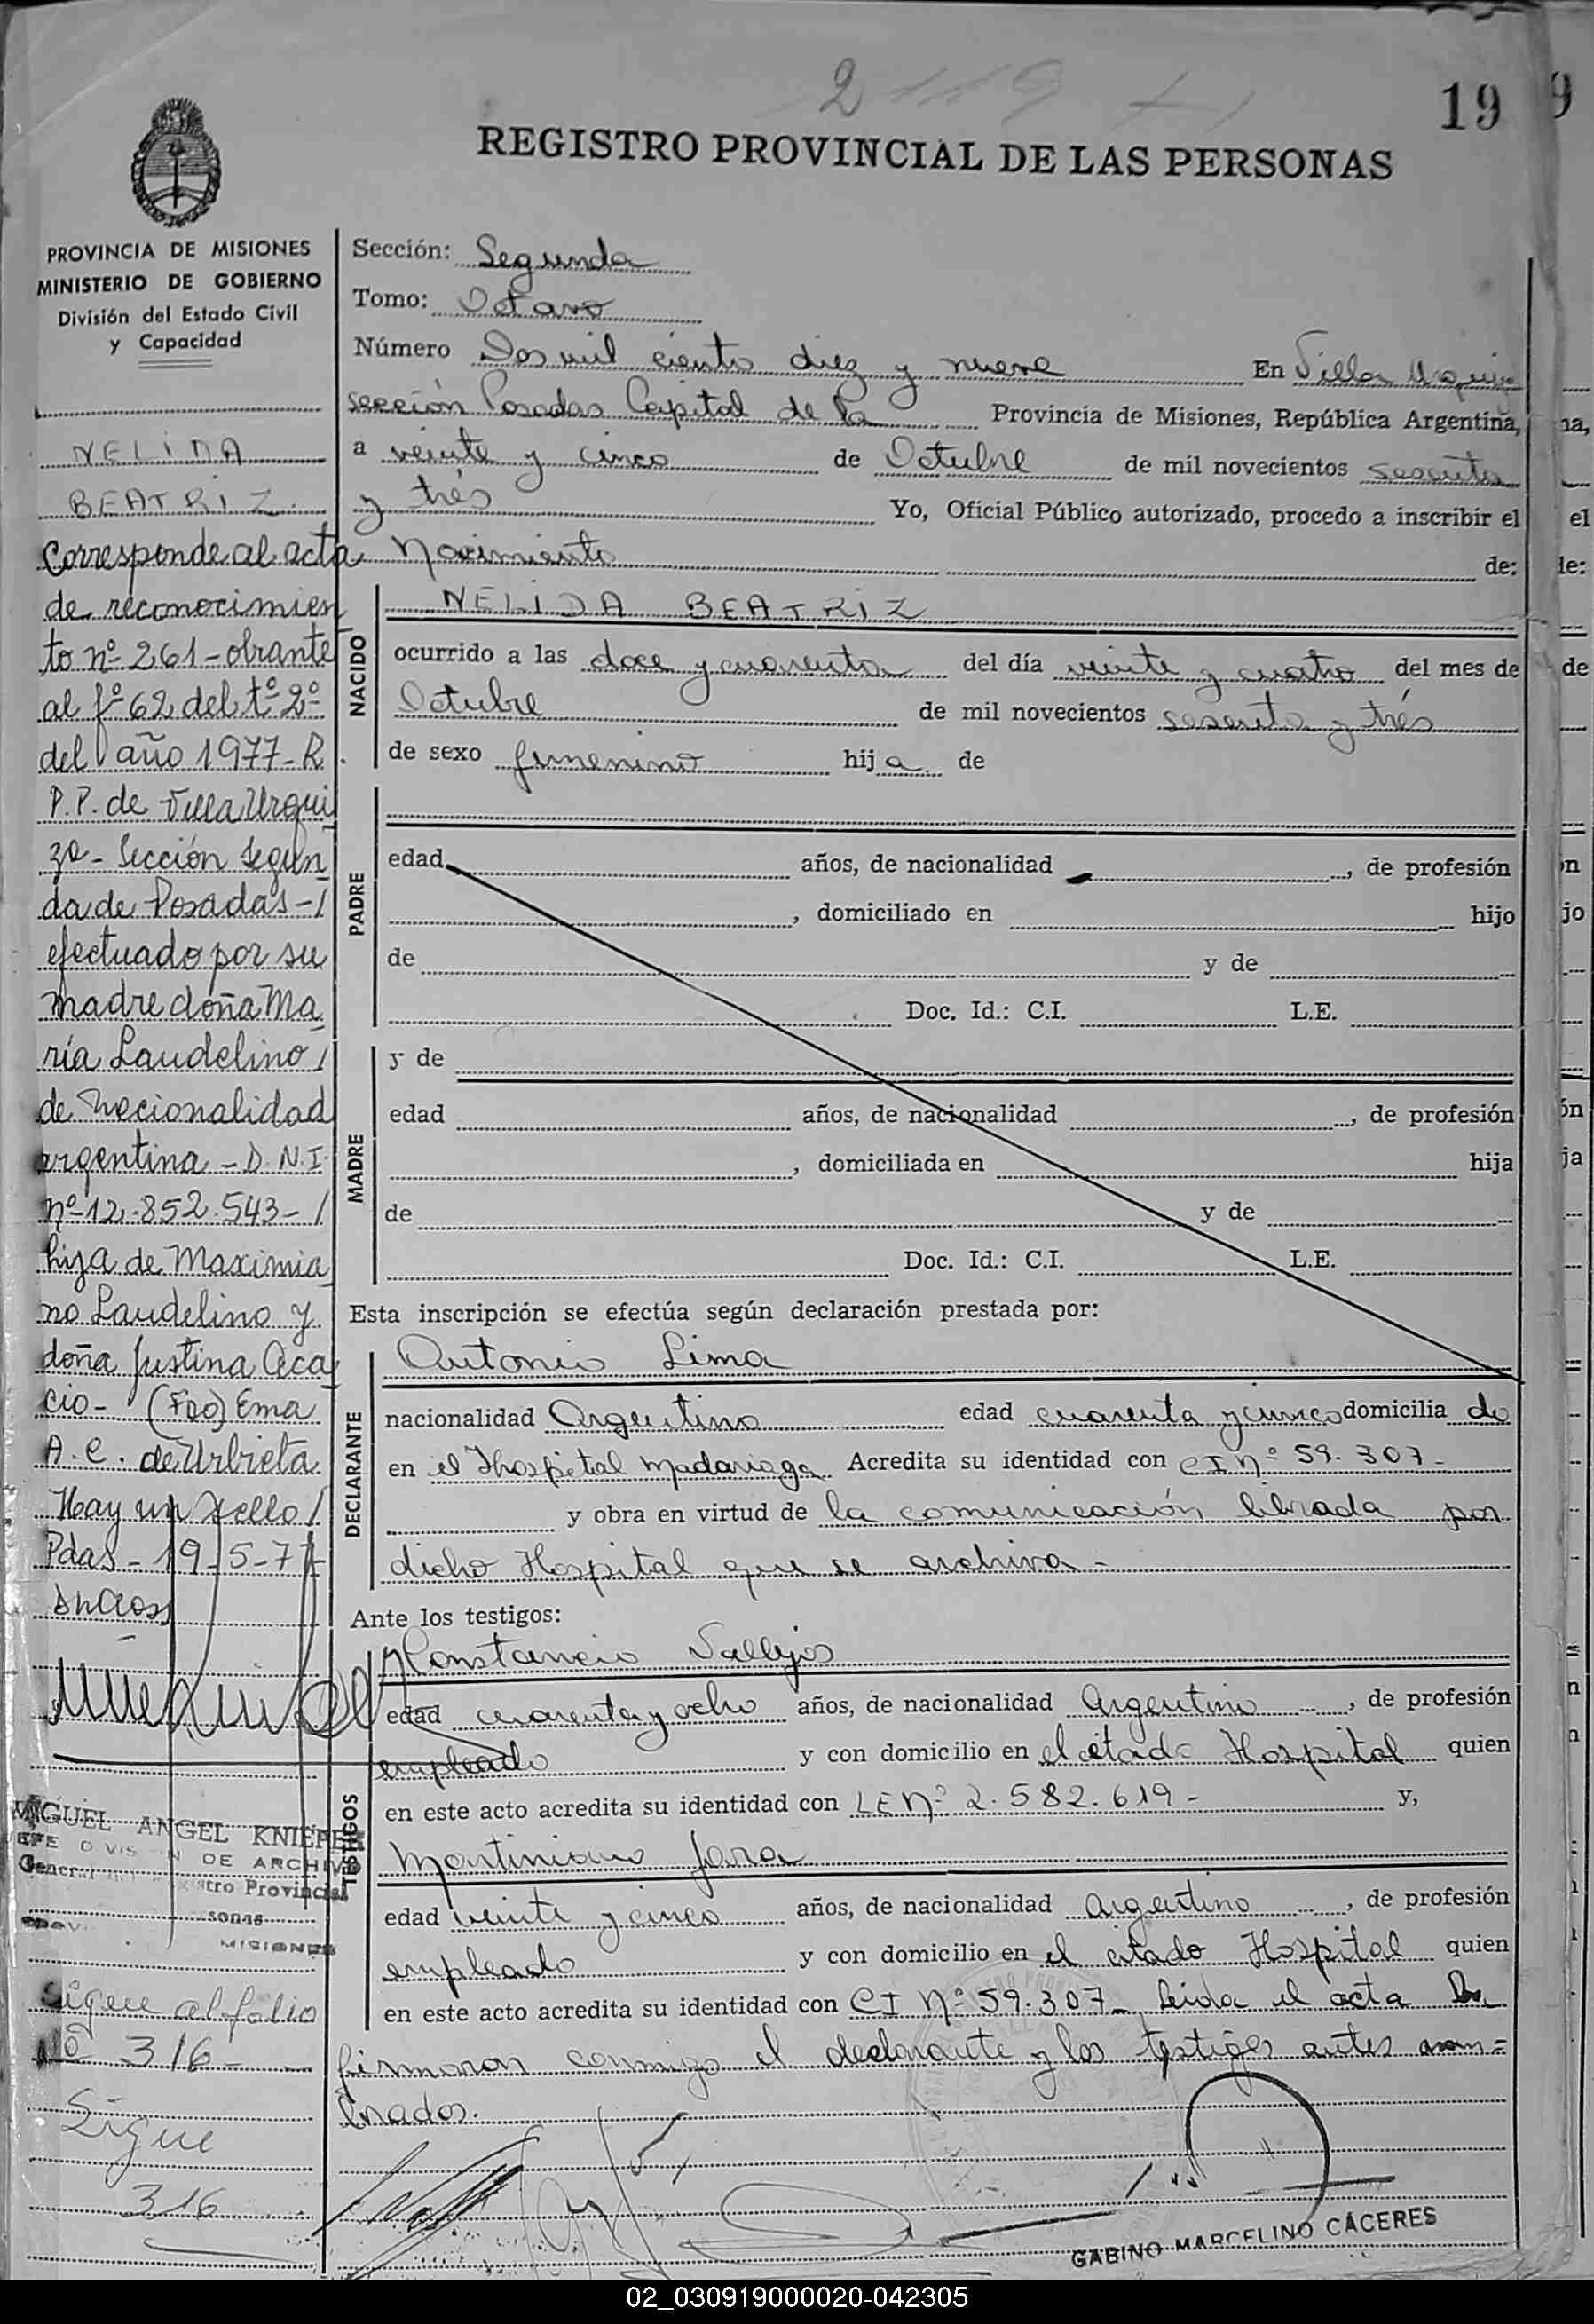 2119
19
REGISTRO PROVINCIAL DE LAS PERSONAS
PROVINCIA DE MISIONES
MINISTERIO DE GOBIERNO
División del Estado Civil
y Capacidad
NELIDA
BEATRIZ.
Corresponde al acta
de reconocimien
to nº 261-obrante
al fº 62 del tº 2º
del año 1977-R.
P.P. de Villa Urqui
za - Sección Segun
da de Posadas-/
efectuado por su
madre doña Ma
ría Laudelino/
de nacionalidad
argentina - D.N.I.
nº 12.852.543-/
hija de Maximia
no Laudelino y
doña Justina Aca
cio- (Fdo) Ema
A. C. de Urbieta
Hay un sello/
Pdas-19-5-77
MIGUEL ANGEL KNIEPER
JEFE DIVISION DE ARCHIVO
General Registro Provincial
Sigue al folio
Nº 316-
Sigue
316
Sección: Segunda
Tomo: Octavo
Número Dos mil ciento diez y nueve En Villa Urquiza
sección Posadas Capital de la Provincia de Misiones, República Argentina,
a veinte y cinco de Octubre de mil novecientos sesenta
y trés Yo, Oficial Público autorizado, procedo a inscribir el
Nacimiento de:
NACIDO
NELIDA BEATRIZ
ocurrido a las doce y cuarenta del día veinte y cuatro del mes de
Octubre de mil novecientos sesenta y trés
de sexo femenino hija de
PADRE
edad años, de nacionalidad , de profesión
, domiciliado en hijo
de y de
Doc. Id.: C.I. L.E.
MADRE
y de
edad años, de nacionalidad , de profesión
, domiciliada en hija
de y de
Doc. Id.: C.I. L.E.
Esta inscripción se efectúa según declaración prestada por:
DECLARANTE
Antonio Lima
nacionalidad Argentino edad cuarenta y cinco domicilia do
en el Hospital Madariaga Acredita su identidad con CI nº 59.307-
y obra en virtud de la comunicación librada por
dicho Hospital que se archiva-
Ante los testigos:
TESTIGOS
Constancio Vallejos
edad cuarenta y ocho años, de nacionalidad Argentino , de profesión
empleado y con domicilio en el citado Hospital quien
en este acto acredita su identidad con LE Nº 2.582.619- y,
Martiniano Jara
edad veinte y cinco años, de nacionalidad Argentino , de profesión
empleado y con domicilio en el citado Hospital quien
en este acto acredita su identidad con CI Nº 59.307- Leida el acta la
firmaron conmigo el declarante y los testigos antes nom=
brados.
GABINO MARCELINO CÁCERES
02_030919000020-042305